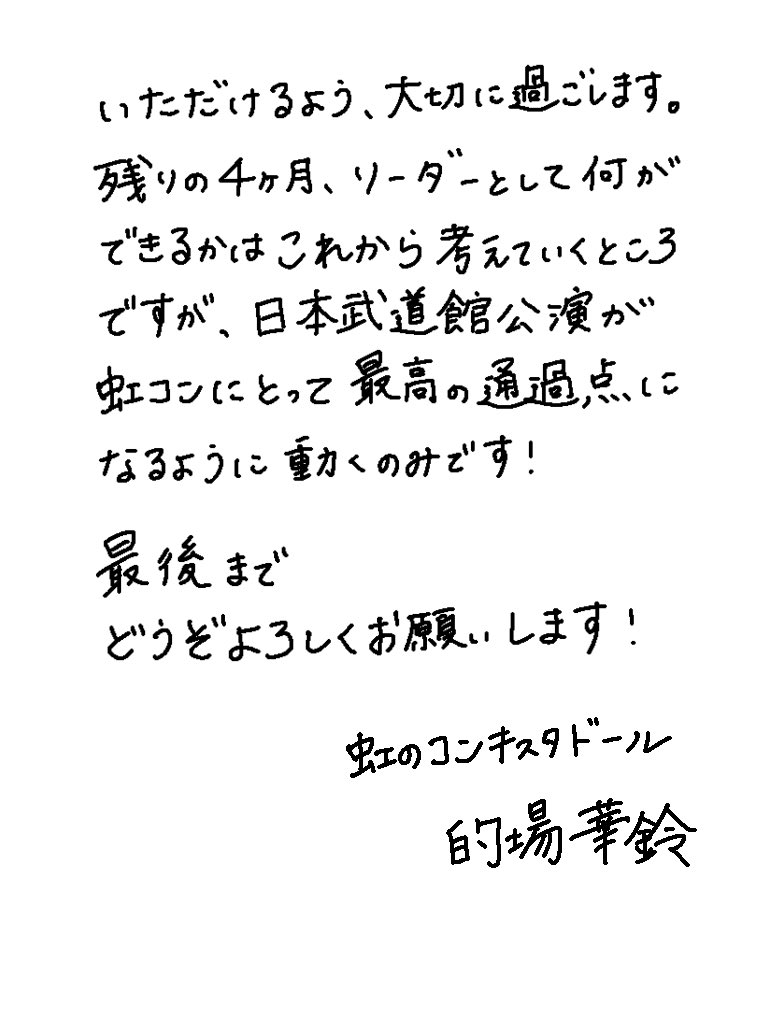 いただけるよう、大切に過ごします。
残りの4ヶ月、リーダーとして何が
できるかはこれから考えていくところ
ですが、日本武道館公演が
虹コンにとって最高の通過点に
なるように動くのみです!
最後まで
どうぞよろしくお願いします!
虹のコンキスタドール
的場華鈴